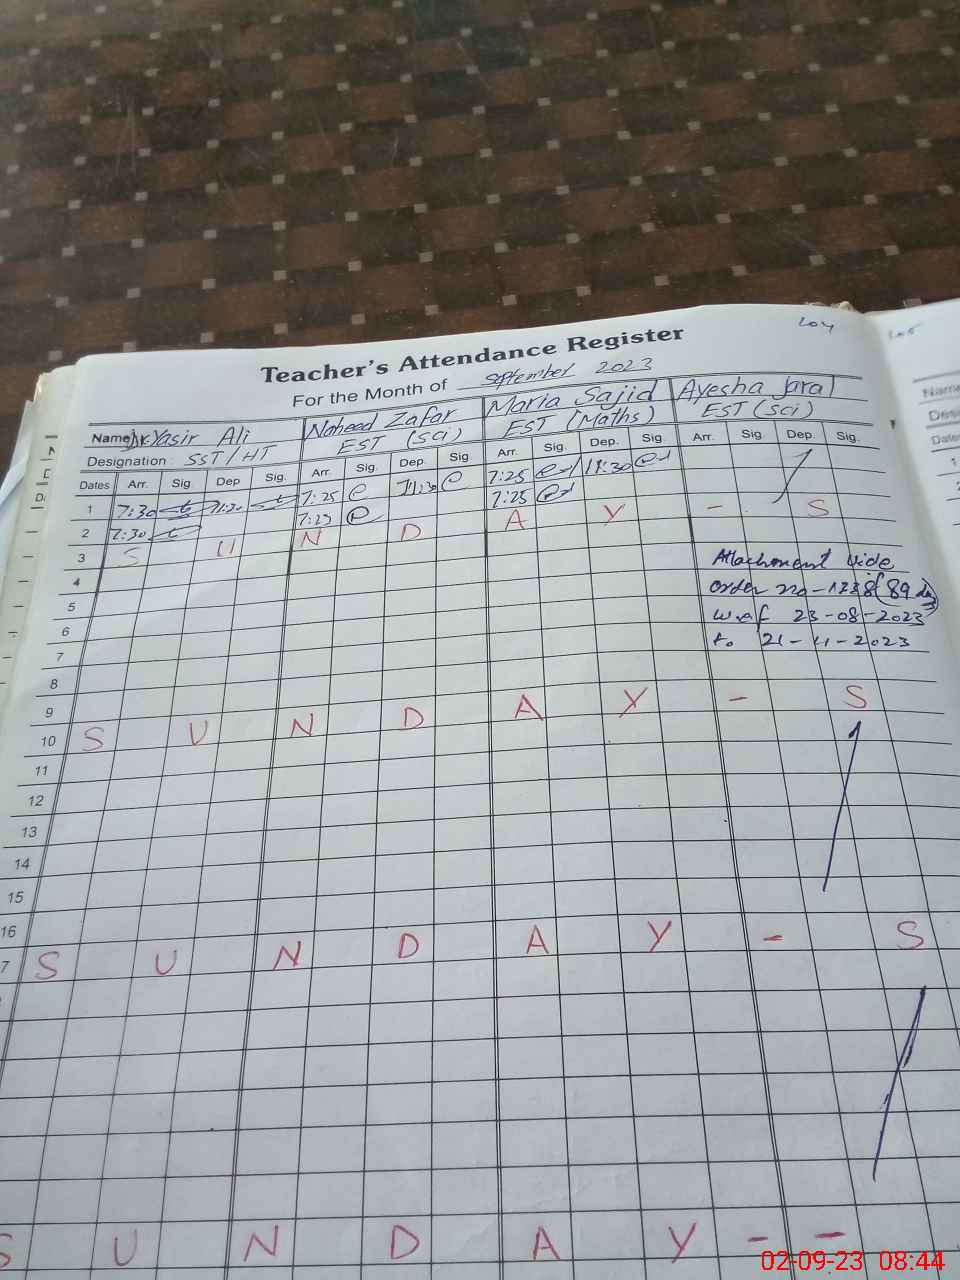 204
Teacher's Attendance Register
For the Month of September 2023
Name: Dr. Yasir Ali
Designation: SST/HT
Naheed Zafar
EST (Sci)
Maria Sajid
EST (Maths)
Ayesha
EST (Sci)
Dates Arr. Sig. Dep Sig. Arr. Sig. Dep. Sig. Arr. Sig. Dep. Sig. Arr. Sig. Dep. Sig.
1 7:30 11:30 7:25 11:30 7:25 11:30
2 7:30 7:25 7:25
3 S U N D A Y - S
4
5
6
7
8
9
10 S U N D A Y - S
11
12
13
14
15
16
7 S U N D A Y - S
S U N D A Y - -
Attachment vide
order no-1738 (89
w.e.f 23-08-2023
to 21-11-2023
Name
Desi
Dates
1
02-09-23 08:44